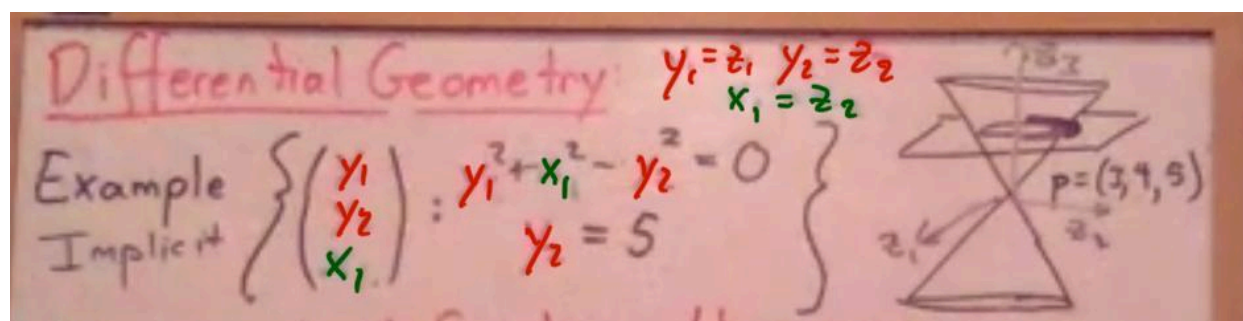 Differential Geometry:
y₁ = z₁ y₂ = z₂
x₁ = z₂
Example
Implicit
{ ( y₁ y₂ x₁ ) : y₁² + x₁² - y₂² = 0
y₂ = 5 }
p = (3, 4, 5)
z₁
z₂